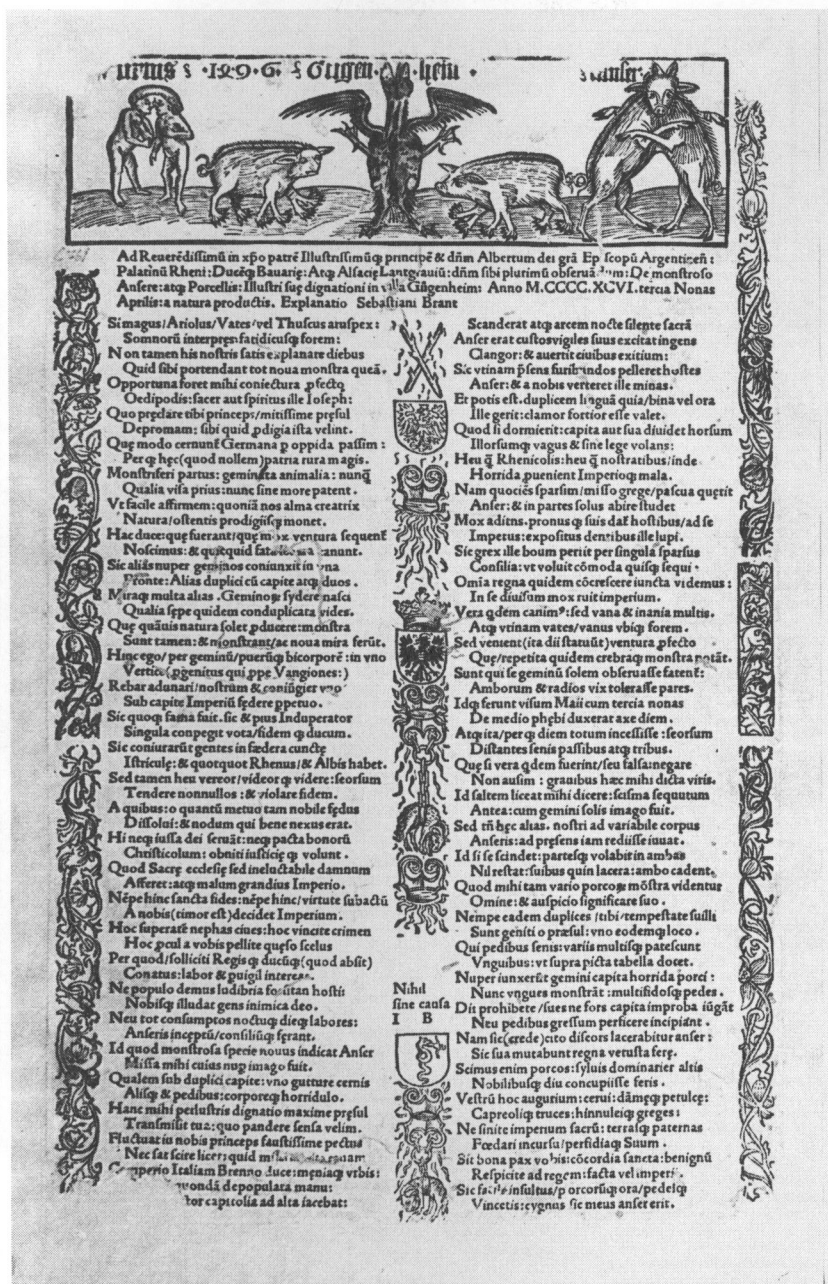 · 1296 · Gugen · hein ·
Ad Reuerēdissimū in xp̄o patrē Illustrissimūq; principē & dñm Albertum dei grā Ep scopū Argentineñ:
Palatinū Rheni: Ducēq; Bauarię: Atq; Alsacię Lantgrauiū: dñm sibi plurimū obseruā dum: De monstroso
Ansere: atq; Porcellis: Illustri suę dignationi in villa Gūgenheim: Anno M.CCCC.XCVI. tercia Nonas
Aprilis: a natura productis. Explanatio Sebastiani Brant
Si magus/Ariolus/Vates/vel Thuscus aruspex:
Somnorū interpres fatidicusq; forem:
Non tamen his nostris satis explanare diebus
Quid sibi portendant tot noua monstra queā.
Opportuna foret mihi coniectura p̱fecto
Oedipodis: facer aut spiritus ille Ioseph:
Quo prędare tibi princeps/mitissime pręsul
Depromam: sibi quid ꝓdigia ista velint.
Quę modo cernunt̄ Germana ꝑ oppida passim:
Perq; hęc (quod nollem) patria rura magis.
Monstriferi partus: geminata animalia: nunq̄
Qualia visa prius: nunc sine more patent.
Vt facile affirmem: quoniā nos alma creatrix
Natura/ostentis prodigiisq; monet.
Hac duce: quę fuerant/quę mox ventura sequent̄
Noscimus: & quicquid canunt.
Sic alias nuper geminos coniunxit in vna
Fronte: Alias duplici cū capite atq; duos.
Miraq; multa alias. Geminos sydere nasci
Qualia sępe quidem conduplicata vides.
Quę quāuis natura solet ꝓducere: monstra
Sunt tamen: & monstrant/ac noua mira ferūt.
Hinc ego/per geminū/puerūq; bicorporē: in vno
Vertice (ꝓgenitus qui ꝓpe Vangiones:)
Rebar adunari/nostrum & coniūgier vno
Sub capite Imperiū fędere ꝑpetuo.
Sic quoq; fama fuit. sic & pius Induperator
Singula conpegit vota/fidem q; ducum.
Sic coniurarūt gentes in fædera cunctę
Istriculę: & quotquot Rhenus/& Albis habet.
Sed tamen heu vereor/videor q; videre: seorsum
Tendere nonnullos: & violare fidem.
A quibus: o quantū metuo tam nobile fędus
Dissolui: & nodum qui bene nexus erat.
Hi neq; iussa dei seruāt: neq; pacta bonorū
Christicolum: obniti iusticię q; volunt.
Quod Sacrę ecclesię sed ineluctabile damnum
Afferet: atq; malum grandius Imperio.
Nēpe hinc sancta fides: nēpe hinc/virtute subactū
A nobis (timor est) decidet Imperium.
Hoc superate nephas ciues: hoc vincite crimen
Hoc ꝓcul a vobis pellite quęso scelus
Per quod/solliciti Regis q; ducūq; (quod absit)
Conatus: labor & puigil interest.
Ne populo demus ludibria forsitan hosti
Nobisq; illudat gens inimica deo.
Neu tot consumptos noctuq; dieq; labores:
Anseris inceptū/consiliūq; ferant.
Id quod monstrosa specie nouus indicat Anser
Missa mihi cuius nuꝑ imago fuit.
Qualem sub duplici capite: vno gutture cernis
Alisq; & pedibus: corporeq; horridulo.
Hanc mihi perlustris dignatio maxime pręsul
Transmisit tua: quo pandere sensa velim.
Fluctuat in nobis princeps faustissime pectus
Nec sat scire licet: quid
Comperio Italiam Brenno duce: męniaq; vrbis:
quondā depopulata manu:
capitolia ad alta iacebat:
Nihil
sine causa
I B
Scanderat atq; arcem nocte silente sacrā
Anser erat custos vigiles suus excitat ingens
Clangor: & auertit ciuibus exitium:
Sic vtinam p̄sens furibundos pelleret hostes
Anser: & a nobis verteret ille minas.
Et potis est. duplicem linguā quia/bina vel ora
Ille gerit: clamor fortior esse valet.
Quod si dormierit: capita aut sua diuidet horsum
Illorsumq; vagus & sine lege volans:
Heu q̄ Rhenicolis: heu q̄ nostratibus/inde
Horrida ꝓuenient Imperioq; mala.
Nam quociēs sparsim/misso grege/pascua quęrit
Anser: & in partes solus abire studet
Mox aditus. pronus q; suis dat̄ hostibus/ad se
Impetus: expositus dentibus ille lupi.
Sic grex ille boum periit per singula sparsus
Consilia: vt voluit cōmoda quisq; sequi.
Omīa regna quidem cōcrescere iuncta videmus:
In se diuisum mox ruit imperium.
Vera q̇dem canim⁹: sed vana & inania multis.
Atq; vtinam vates/vanus vbiq; forem.
Sed venient (ita dii statuūt) ventura ꝓfecto
Quę/repetita quidem crebraq; monstra notāt.
Sunt qui se geminū solem obseruasse fatent̄:
Amborum & radios vix tolerasse pares.
Idq; ferunt visum Maii cum tercia nonas
De medio phębi duxerat axe diem.
Atq; ita/perq; diem totum incessisse: seorsum
Distantes senis passibus atq; tribus.
Quę si vera q̇dem fuerint/seu falsa: negare
Non ausim: grauibus hæc mihi dicta viris.
Id saltem liceat mihi dicere: scisma sequutum
Antea: cum gemini solis imago fuit.
Sed tn̄ hęc alias. nostri ad variabile corpus
Anseris: ad pręsens iam rediisse iuuat.
Id si se scindet: partesq; volabit in ambas
Nil restat: suibus quin lacera: ambo cadent.
Quod mihi tam vario porcoꝝ mōstra videntur
Omine: & auspicio significare suo.
Nempe eadem duplices/tibi/tempestate suilli
Sunt geniti o præsul: vno eodemq; loco.
Qui pedibus senis: variis multisq; patescunt
Vnguibus: vt supra picta tabella docet.
Nuper iunxerūt gemini capita horrida porci:
Nunc vngues monstrāt: multifidosq; pedes.
Dii prohibete/sues ne fors capita improba iūgāt
Neu pedibus gressum perficere incipiant.
Nam sic (crede) cito discors lacerabitur anser:
Sic sua mutabunt regna vetusta ferę.
Scimus enim porcos: syluis dominarier altis
Nobilibusq; diu concupiisse feris.
Vestrū hoc augurium: cerui: dāmęq; petulcę:
Capreoliq; truces: hinnuleiq; greges:
Ne sinite imperium sacrū: terrasq; paternas
Fœdari incursu/perfidiaq; Suum.
Sit bona pax vobis: cōcordia sancta: benignū
Respicite ad regem: facta vel imperi.
Sic facile insultus/porcorūq; ora/pedesq;
Vincetis: cygnus sic meus anser erit.